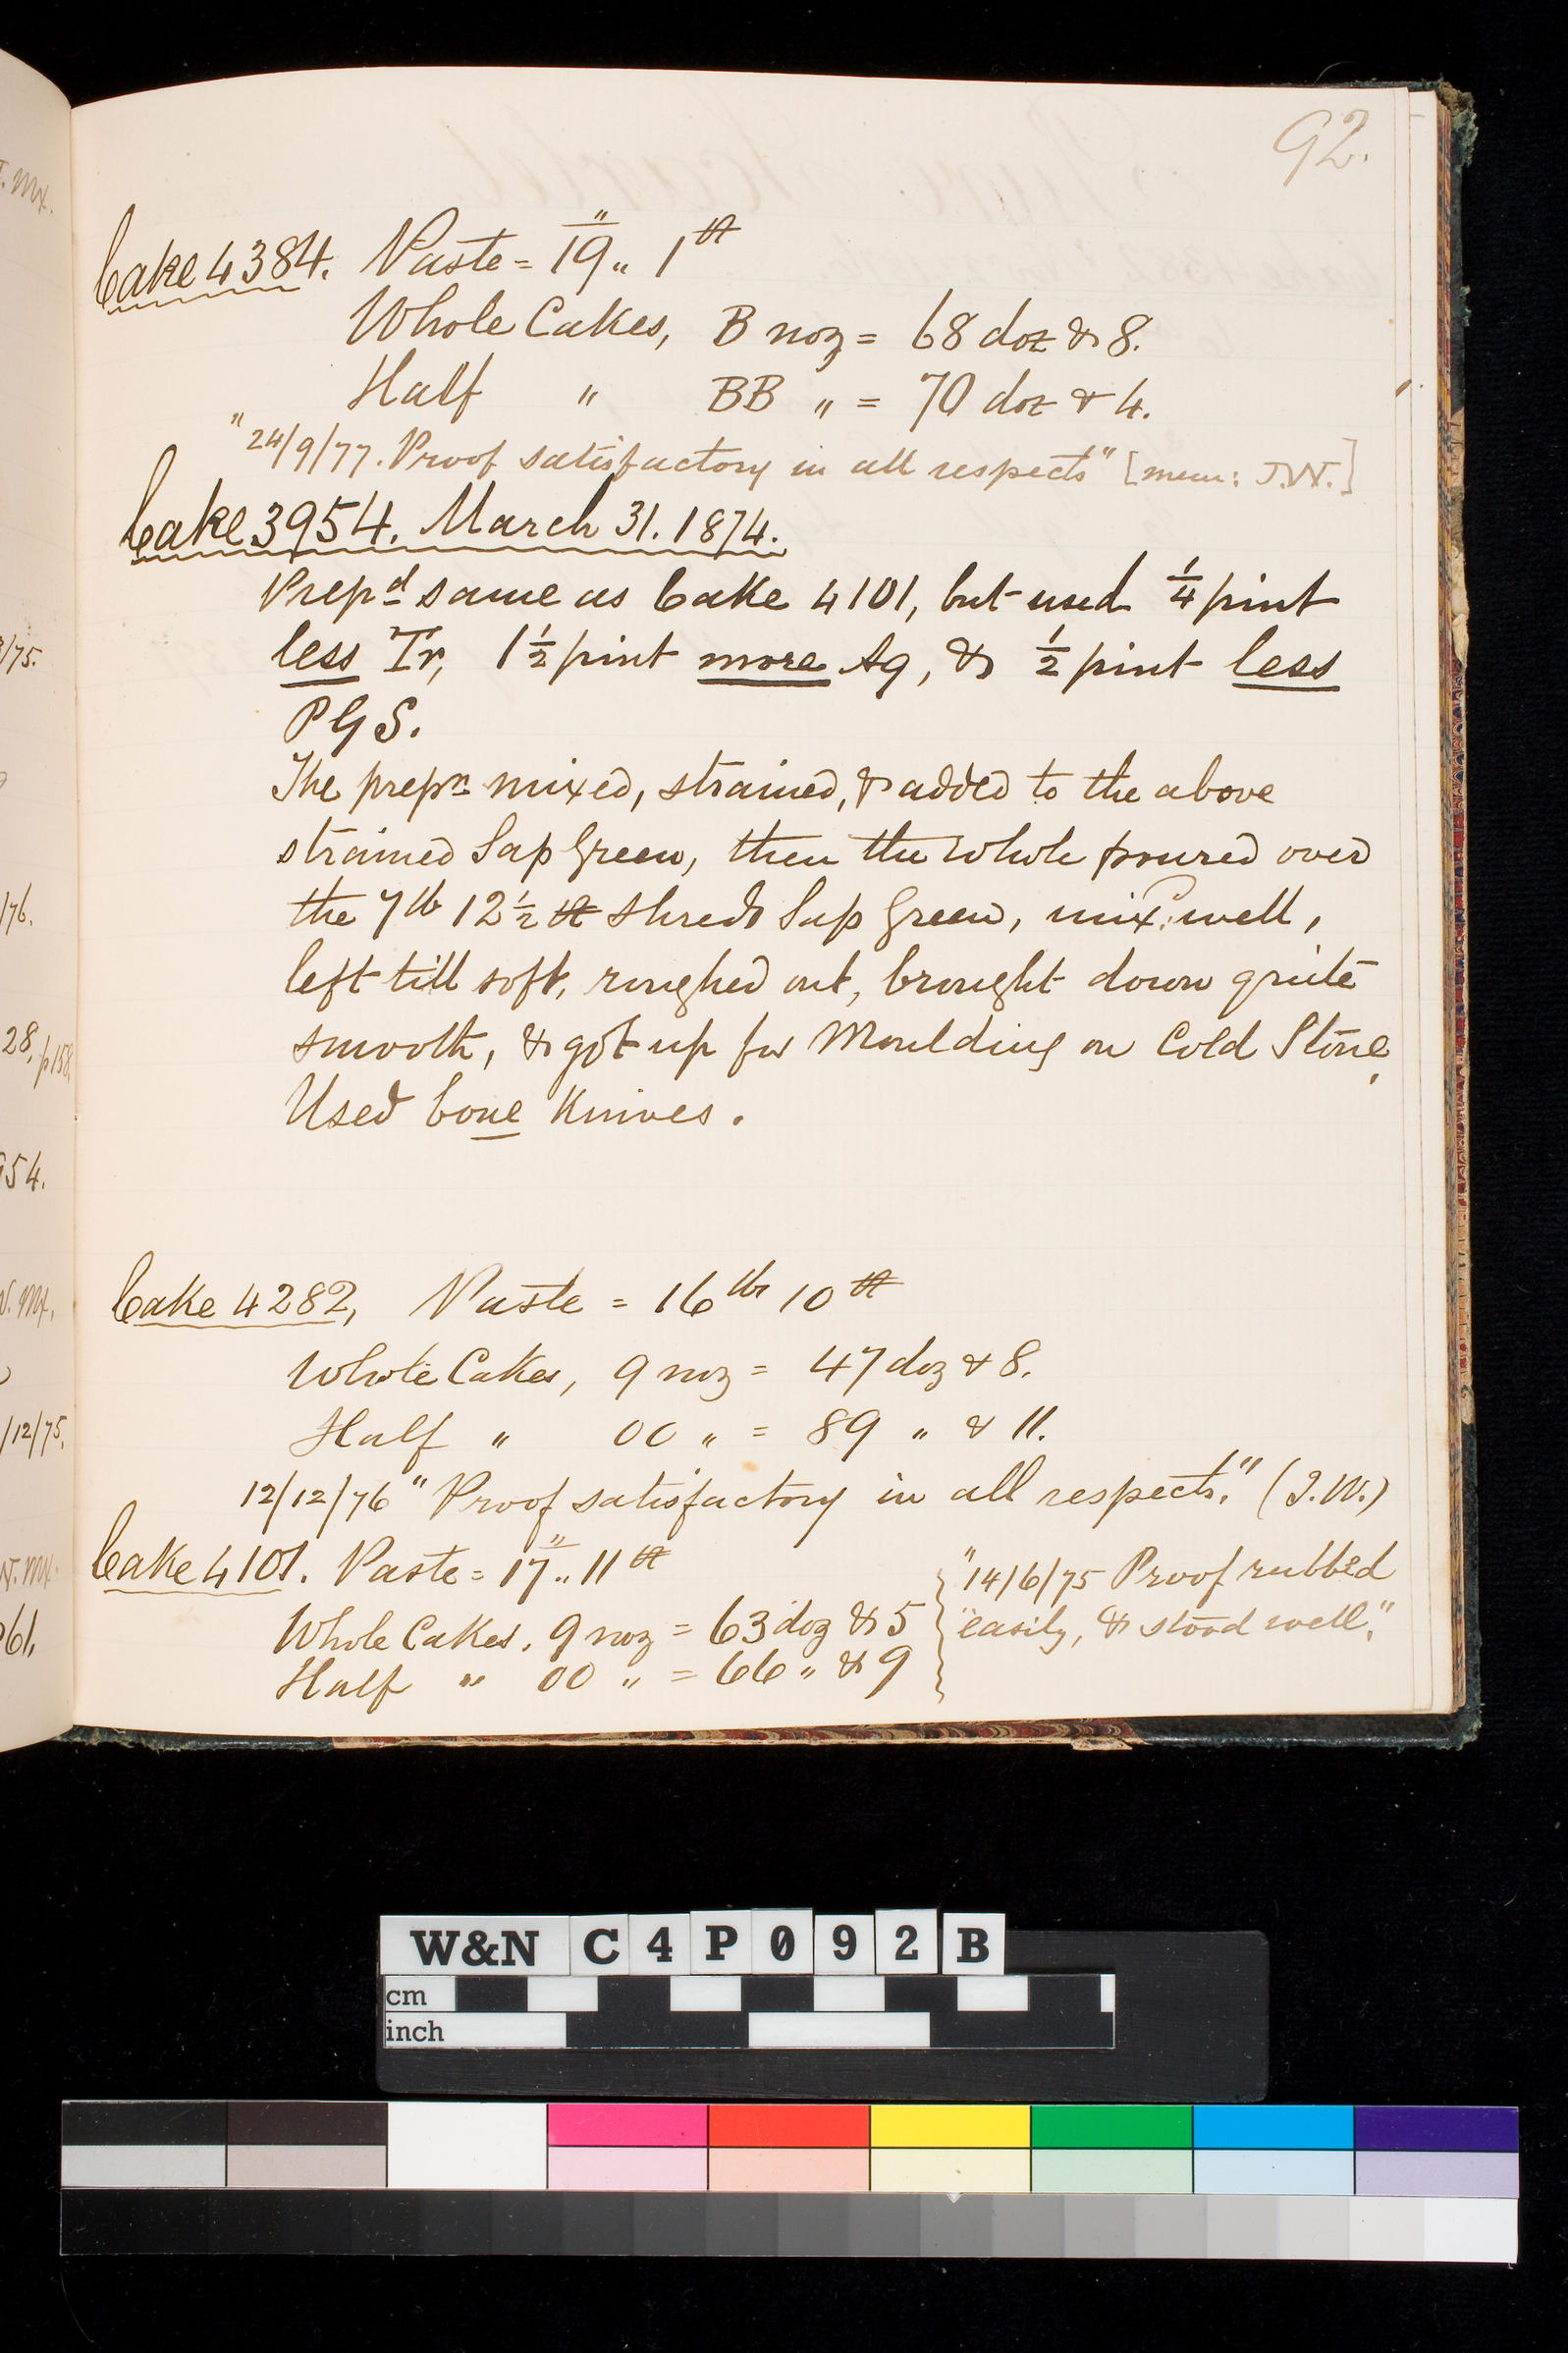 92.
Cake 4384. Paste = 19 „ 1 oz
Whole Cakes, B noz = 68 doz & 8.
Half " BB „ = 70 doz & 4.
"24/9/77. Proof satisfactory in all respects" [mem: J.W.]
Cake 3954. March 31. 1874.
Prepd same as Cake 4101, but used 1/4 pint
less Tr, 1 1/2 pint more Aq, & 1/2 pint less
PGS.
The prepn mixed, strained, & added to the above
strained Sap Green, then the whole poured over
the 7 lb 12 1/2 oz shreds Sap Green, mixd: well,
left till soft, roughed out, brought down quite
smooth, & got up for Moulding on Cold Stone,
Used bone Knives.
Cake 4282, Paste = 16 lbs 10 oz
Whole Cakes, 9 noz = 47 doz & 8.
Half " 00 „ = 89 „ & 11.
12/12/76 "Proof satisfactory in all respects." (J.W.)
Cake 4101. Paste = 17 „ 11 oz
Whole Cakes, 9 noz = 63 doz & 5
Half " 00 „ = 66 „ & 9
"14/6/75 Proof rubbed
"easily, & stood well."
3/75.
/76.
28, p158,
954.
/12/75,
61,
W&N C4P092B
cm
inch